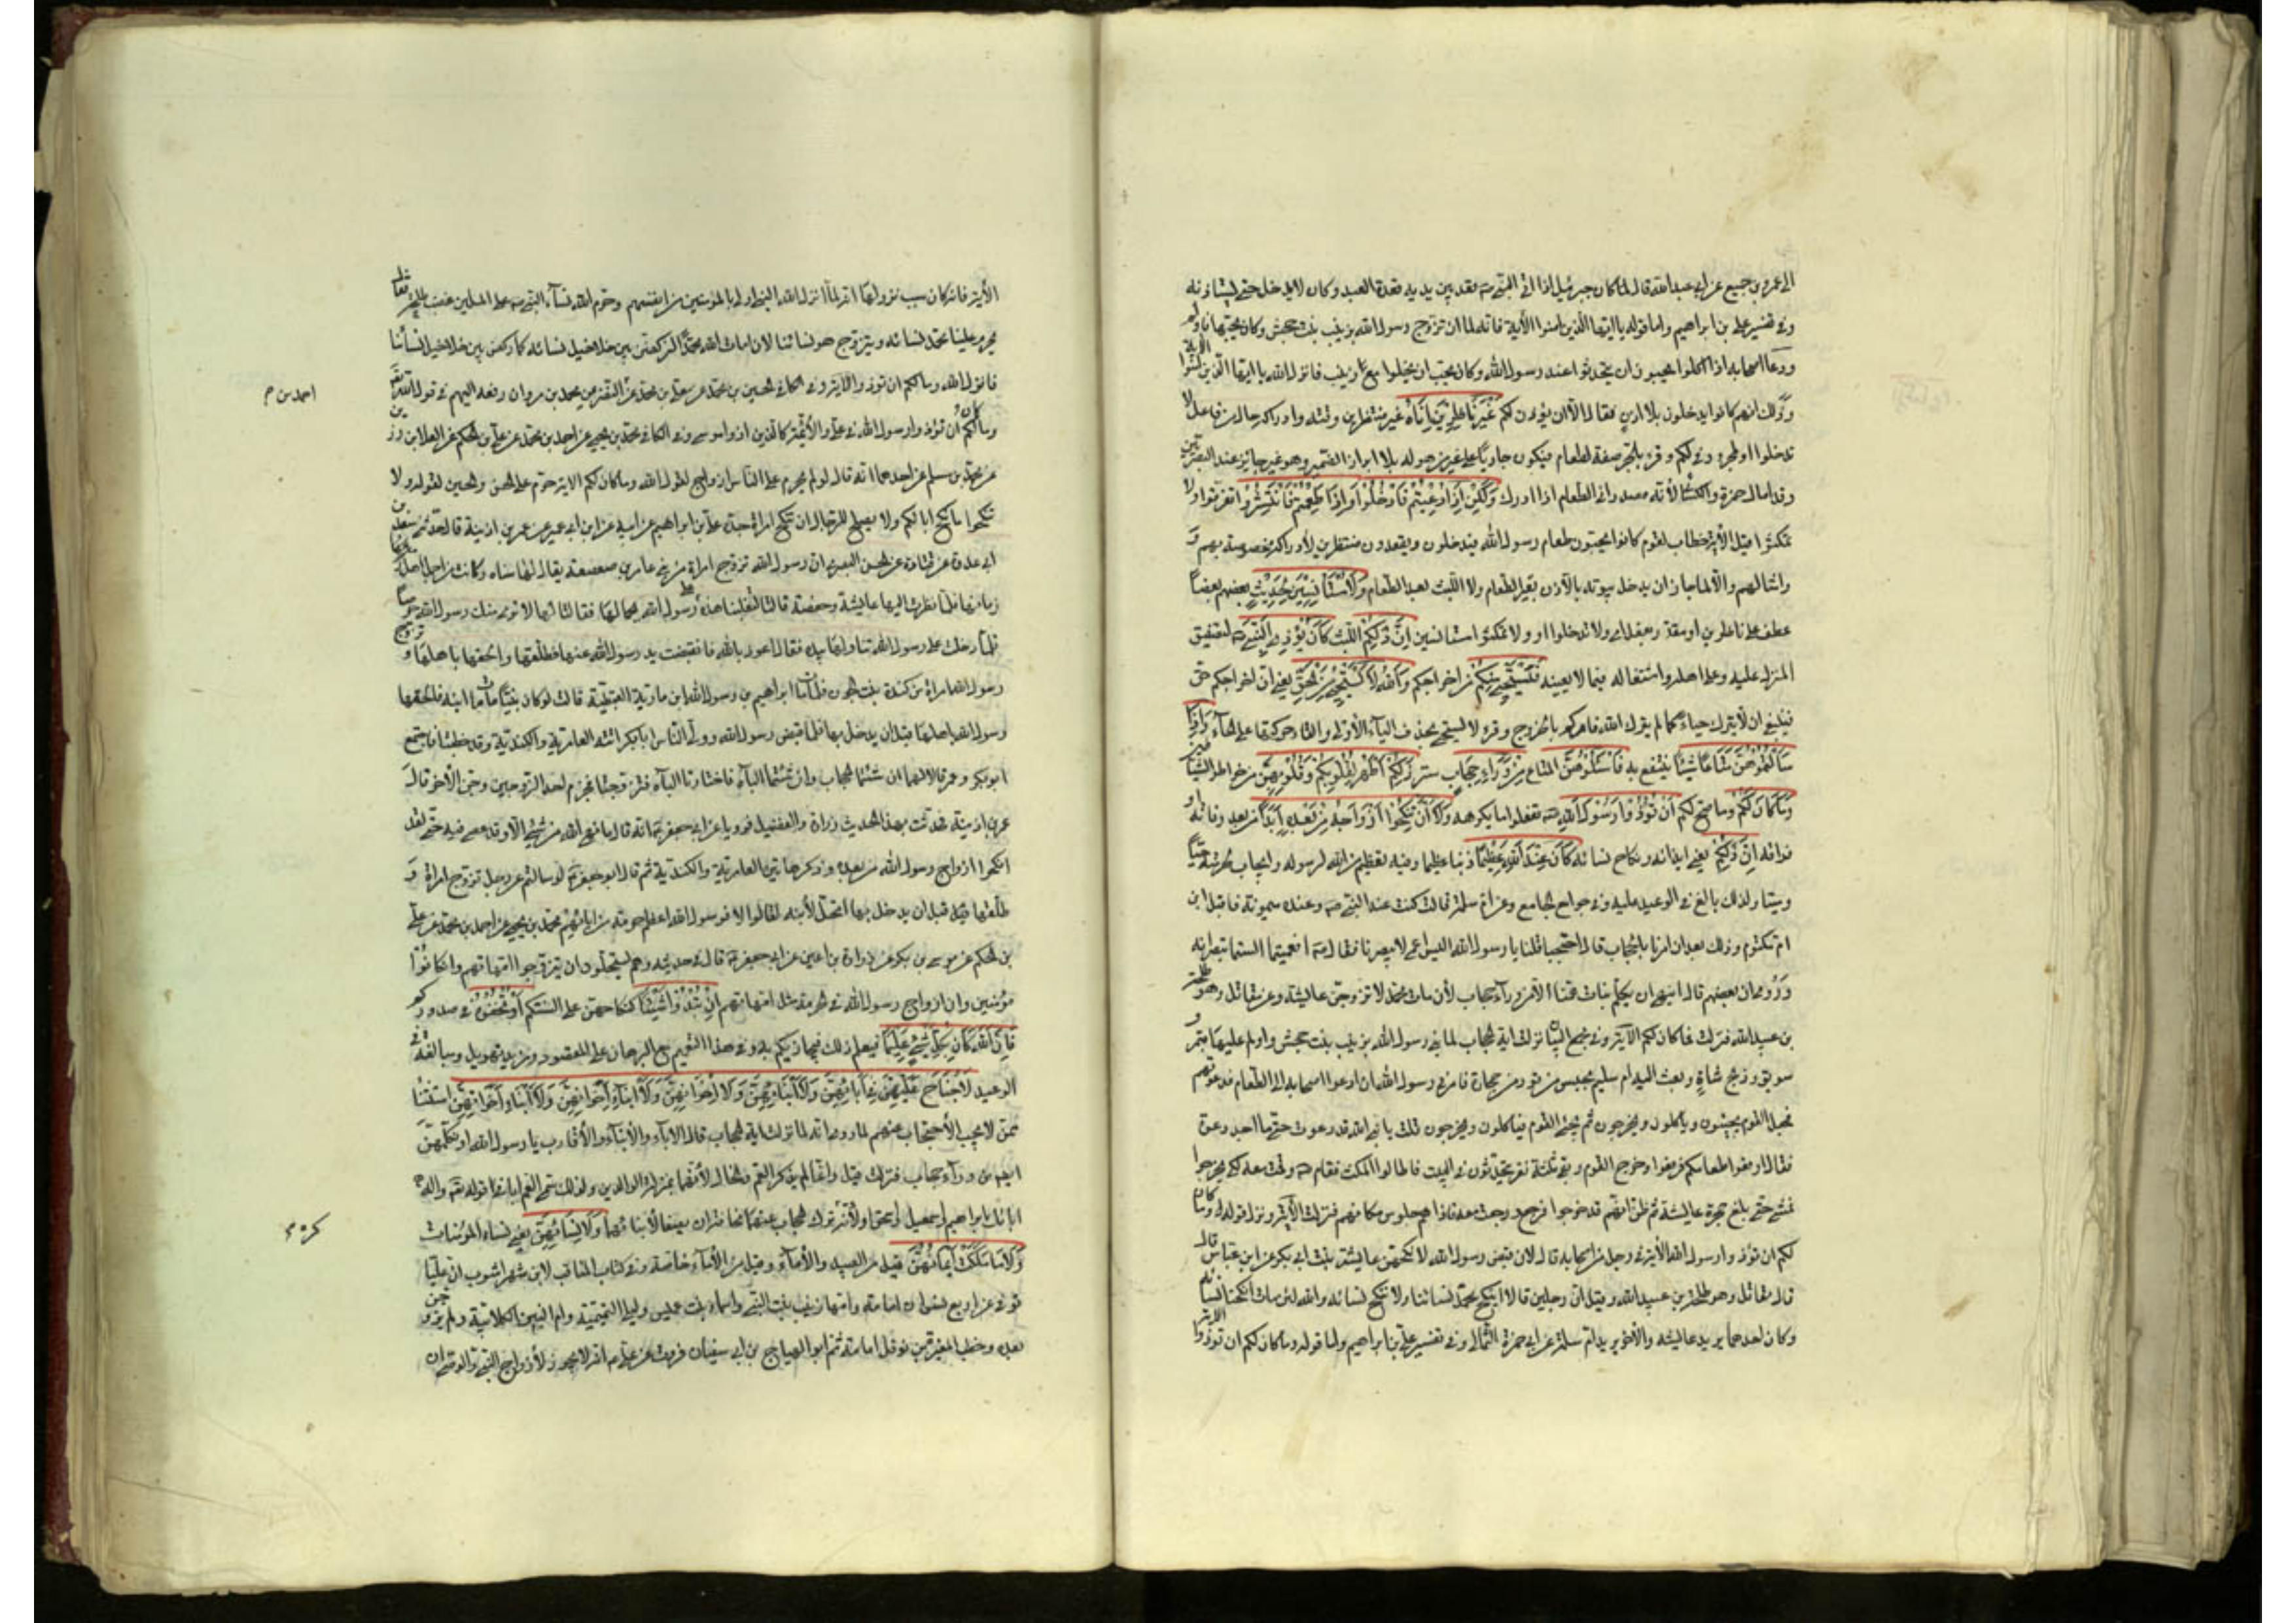 الى عمرو بن جميع عن ابي عبد الله قال كان جبرئيل اذا اتى النبي ص قعد بين يديه قعدة العبد وكان لا يدخل حتى يستاذنه
وفي تفسير علي بن ابراهيم واما قوله يا ايها الذين امنوا الآية فانه لما ان تزوج رسول الله بزينب بنت جحش وكان يحبها فاولم
ودعا اصحابه اذا اكلوا يحبون ان يتحدثوا عند رسول الله وكان يحب ان يخلوا مع زينب فانزل الله يا ايها الذين امنوا الآية
وذلك انهم كانوا يدخلون بلا اذن فقال الا ان يؤذن لكم غَيْرَ نَاظِرِينَ إِنَاهُ غير منتظرين وقته وادراكه حال من فاعل لا
تدخلوا او المجرور في لكم وقرء بالجر صفة لطعام فيكون جاريا على غير من هو له بلا ابراز الضمير وهو غير جائز عند البصريين
وقد امال حمزة والكسائي لأنه مصدر انى الطعام اذا ادرك وَلَكِنْ إِذَا دُعِيتُمْ فَادْخُلُوا فَإِذَا طَعِمْتُمْ فَانْتَشِرُوا تفرقوا ولا
تمكثوا قيل الآية خطاب لقوم كانوا يحيتون طعام رسول الله فيدخلون ويقعدون منتظرين لادراكه مخصوصة بهم و
وامثالهم والا لما جاز ان يدخل بيوته بالاذن بغير الطعام ولا اللبث بعد الطعام وَلَا مُسْتَأْنِسِينَ لِحَدِيثٍ بعضهم بعضا
عطف على ناظرين او مقدر بفعل اي ولا تدخلوا او ولا تمكثوا مستانسين إِنَّ ذَلِكُمْ اللبث كَانَ يُؤْذِي النَّبِيَّ ص لتضيق
المنزل عليه وعلى اهله واشتغاله فيما لا يعنيه فَيَسْتَحْيِي مِنْكُمْ من اخراجكم وَاللَّهُ لَا يَسْتَحْيِي مِنَ الْحَقِّ يعني ان اخراجكم حق
فينبغي ان لا يترك حياء كما لم يتركه الله فامركم بالخروج وقرء لا يستحي بحذف الياء الاولى والقاء حركتها على الحاء وَإِذَا
سَأَلْتُمُوهُنَّ مَتَاعًا شيئا ينتفع به فَاسْأَلُوهُنَّ المتاع مِنْ وَرَاءِ حِجَابٍ ستر ذَلِكُمْ أَطْهَرُ لِقُلُوبِكُمْ وَقُلُوبِهِنَّ من خواطر الشيطانية
وَمَا كَانَ لَكُمْ وما صح لكم أَنْ تُؤْذُوا رَسُولَ اللَّهِ ان تفعلوا ما يكرهه وَلَا أَنْ تَنْكِحُوا أَزْوَاجَهُ مِنْ بَعْدِهِ أَبَدًا من بعد وفاته او
فراقه إِنَّ ذَلِكُمْ يعني ايذائه ونكاح نسائه كَانَ عِنْدَ اللَّهِ عَظِيمًا ذنبا عظيما وفيه تعظيم من الله لرسوله وايجاب لحرمته حيا
وميتا ولذلك بالغ في الوعيد عليه وفي جوامع الجامع وعن ام سلمة قالت كنت عند النبي ص وعنده ميمونة فاقبل ابن
ام مكتوم وذلك بعد ان امرنا بالحجاب فقال احتجبا فقلنا يا رسول الله اليس اعمى لا يبصرنا فقال ص افعمياوان انتما الستما تبصرانه
وروي ان بعضهم قال اننهى ان نكلم بنات عمنا الا من وراء حجاب لئن مات محمد لا تزوجن عايشة وعن مقاتل وهو طلحة
بن عبيد الله فنزلت وما كان لكم الآية وفي مجمع البيان نزلت آية الحجاب لما بنى رسول الله بزينب بنت جحش واولم عليها بتمر و
سويق وذبح شاة وبعثت اليه ام سليم بحيس من تور من حجارة فامرني رسول الله ان ادعوا اصحابه الى الطعام فدعوتهم
فجعل القوم يجيئون وياكلون ويخرجون ثم يجئ القوم فياكلون ويخرجون قلت يا نبي الله قد دعوت حتى ما اجد احدا ادعوه
فقال ارفعوا طعامكم فرفعوا وخرج القوم وبقي ثلثة نفر يتحدثون في البيت فاطالوا المكث فقام ص وقمت معه لكي يخرجوا
فمشى حتى بلغ حجرة عايشة ثم ظن انهم قد خرجوا فرجع ورجعت معه فاذا هم جلوس مكانهم فنزلت الآية ونزل قوله وما كان
لكم ان تؤذوا رسول الله الآية في رجل من الصحابه قال لئن قبض رسول الله لانكحن عايشة بنت ابي بكر عن ابن عباس قال
قال مقاتل وهو طلحة بن عبيد الله وقيل ان رجلين قالا اينكح محمد نسائنا ولا ننكح نسائه والله لئن مات لنكحنا نسائه
وكان احدهما يريد عايشه والاخر يريد ام سلمة عن ابي حمزة الثمالي وفي تفسير علي بن ابراهيم واما قوله وما كان لكم ان تؤذوا
الآية فانه كان سبب نزولها انه لما انزل الله النبي اولى بالمؤمنين من انفسهم وحرم الله نساء النبي ص على المسلمين غضب طلحة فقال
يحرم علينا محمد نسائه ويتزوج هو نسائنا لان امات الله محمدا لنركضن بين خلاخيل نسائه كما ركض بين خلاخيل نسائنا
فانزل الله وما كان لكم ان تؤذوا الآية وفي الكافي الحسين بن محمد عن معلى بن محمد عن محمد بن مروان رفعه اليهم في قول الله تعالى
وما كان لكم ان تؤذوا رسول الله في علي والأئمة كالذين اذوا موسى وفي الكافي محمد بن يحيى عن احمد بن محمد عن علي بن الحكم عن العلا بن رزين
عن محمد بن مسلم عن احدهما انه قال لو لم يحرم على الناس ازواج النبي لقول الله وما كان لكم الآية حرم على الحسن والحسين لقوله ولا
تنكحوا ما نكح ابائكم ولا يصلح للرجال ان تنكح امراة جده علي بن ابراهيم عن ابيه عن ابن ابي عمير عن عمر بن اذينة قال حدثني سعد بن
ابي عروة عن قتادة عن الحسن البصري ان رسول الله تزوج امراة من بني عامر بن صعصعة يقال لها سناه وكانت من اجمل اهل
زمانها فلما نظرت اليها عايشة وحفصة قالتا لتغلبنا هذه على رسول الله بجمالها فقالتا لها لا يرى منك رسول الله حرصا
فلما دخلت على رسول الله تناولها بيده فقالت اعوذ بالله فانقبضت يد رسول الله عنها فطلقها والحقها باهلها وتزوج
رسول الله امراة من كندة بنت الجون فلما مات ابراهيم بن رسول الله ابن مارية القبطية قالت لو كان نبيا ما مات ابنه فالحقها
رسول الله باهلها قبل ان يدخل بها فلما قبض رسول الله وولى الناس ابا بكر اتته العامرية والكندية وقد خطبتا فاجتمع
ابو بكر وعمر فقالا لهما ان شئتما الحجاب وان شئتما الباه فاختارتا الباه فتزوجتا فجذم احد الزوجين وجن الاخر قال
عمر بن اذينة فحدثت بهذا الحديث زرارة والفضيل فرويا عن ابي جعفر انه قال ما نهى الله من شئ الا وقد عصي فيه حتى لقد
انكحوا ازواج رسول الله من بعده وذكر هاتين العامرية والكندية ثم قال ابو جعفر لو سالتم عن رجل تزوج امراة و
طلقها قبل ان يدخل بها اتحل لأبنه لقالوا لا فرسول الله اعظم حرمة من ابائهم محمد بن يحيى عن احمد بن محمد عن علي
بن الحكم عن موسى بن بكر عن زرارة بن اعين عن ابي جعفر نحوه قال في حديثه وهم يستحلون ان يتزوجوا امهاتهم وان كانوا
مؤمنين وان ازواج رسول الله في الحرمة مثل امهاتهم إِنْ تُبْدُوا شَيْئًا كنكاحهن على السنتكم أَوْ تُخْفُوهُ في صدوركم
فَإِنَّ اللَّهَ كَانَ بِكُلِّ شَيْءٍ عَلِيمًا فيعلم ذلك فيجازيكم به وفي هذا التعميم مع البرهان على المقصود مزيد تهويل ومبالغة في
الوعيد لَا جُنَاحَ عَلَيْهِنَّ فِي آبَائِهِنَّ وَلَا أَبْنَائِهِنَّ وَلَا إِخْوَانِهِنَّ وَلَا أَبْنَاءِ إِخْوَانِهِنَّ وَلَا أَبْنَاءِ أَخَوَاتِهِنَّ استثناء
لمن لا يجب الأحتجاب عنهم لما روي انه لما نزلت آية الحجاب قال الآباء والأبناء والأقارب يا رسول الله او نكلمهن
ايضا من وراء حجاب فنزلت قيل وانما لم يذكر العم والخال لأنهما بمنزلة الوالدين ولذلك سمى العم ابا في قوله واله
ابائك ابراهيم واسمعيل واسحق او لأنه كره ترك الحجاب عنهما مخافة ان يصفا لأبنائهما وَلَا نِسَائِهِنَّ يعني نساء المؤمنات
وَلَا مَا مَلَكَتْ أَيْمَانُهُنَّ قيل من العبيد والأماء وقيل من الأماء خاصة وفي كتاب المناقب لابن شهر اشوب ان عليا
توفي عن اربع نسوان امامة وامها زينب بنت النبي واسماء بنت عميس وليلى التميمية وام البنين الكلابية ولم يتزوجن
بعده وخطب المغيرة بن نوفل امامة ثم ابو الهياج بن ابي سفيان فروت عن علي انه لا يجوز لأزواج النبي والوصي ان
احمد بن م
كره م